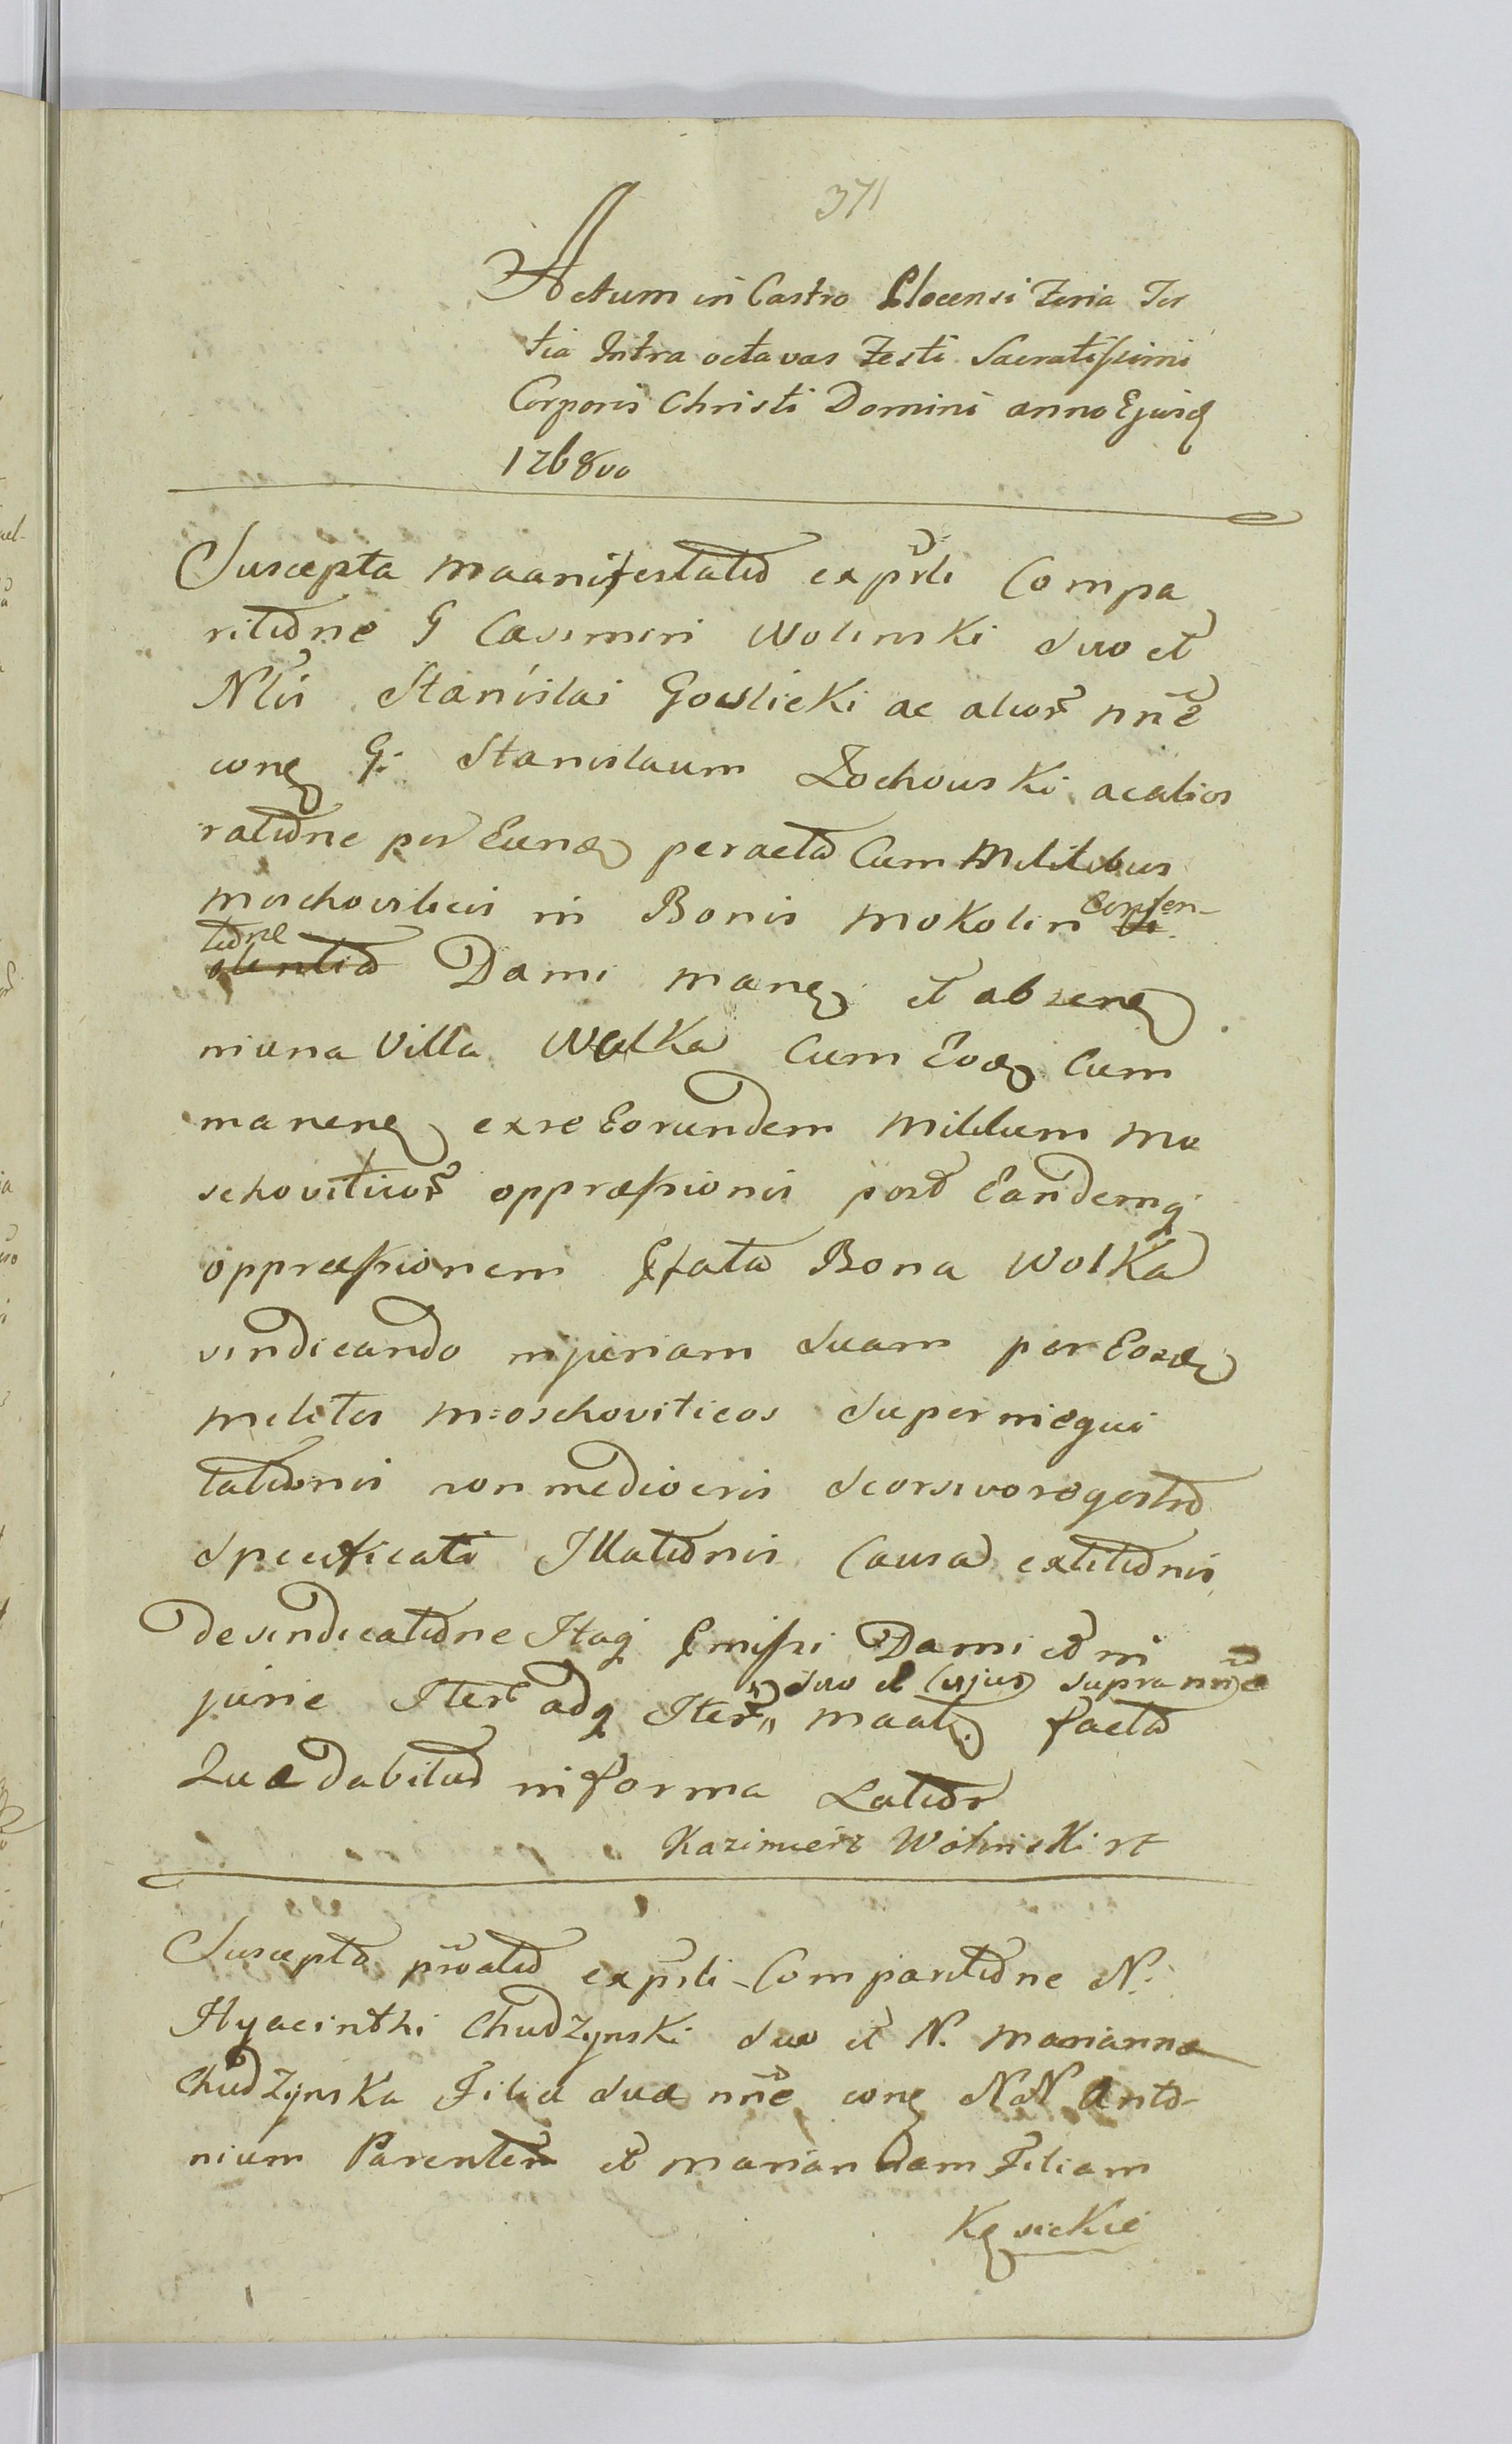 371
Actum in Castro Plocensi Feria Ter
tia Intra octavas Festi Sacratissimi
Corporis Christi Domini anno Ejusd
1768vo
Suscepta maanifestatio ex prsti Compa
ritione G Casimiri Wolinski suo et
Nlis Stanislai Goslicki ac alior nne
cong G: Stanislaum Zochowski ac alios
ratione per Eund peracta Cum Militibus
moschoviticis in Bonis Mokolin Conten-
tione Dami mang et abseng
in una Villa Wolka Cum Eod Cum
maneng ex re Eorundem Militum mo
schoviticor oppræssionis post Eandemq
oppræssionem Pfata Bona Wolka
vindicando injuriam suam per Eosd
milites moschoviticos super inequi
tationis non mediocris seorsivo regestro
specificati Illationis Causa extitionis
de vindicatione Itaq Pmissi Dami et in
jurie Iter adq Iter suo et Cujus supra nne
maat facta
Quæ dabitur in forma Latior
Kazimierz Woliniski rt
Suscepta prvatio ex prsti Comparitione N.
Hyacinthi Chudzynski suo et N. Marianna
Chudzynska Filia sua nne cong NN Anto-
nium Parentem et Mariannam Filiam
Kęsickie